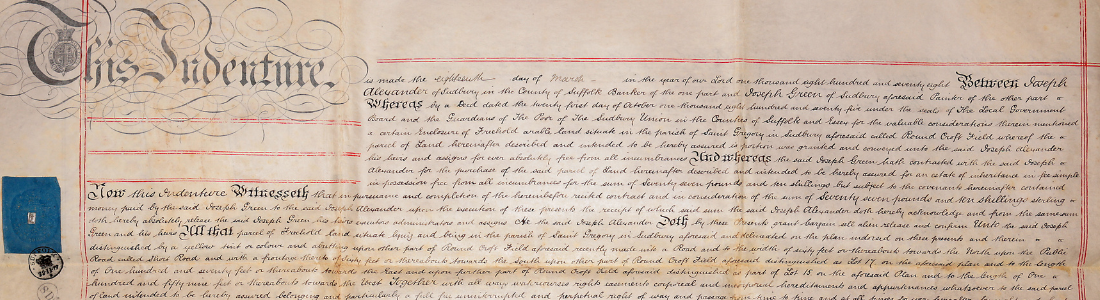 This Indenture,
is made the eighteenth day of March in the year of our Lord one thousand eight hundred and seventy eight Between Joseph
Alexander of Sudbury in the County of Suffolk Banker of the one part and Joseph Green of Sudbury aforesaid Painter of the other part
Whereas by a Deed dated the twenty first day of October one thousand eight hundred and seventy five under the seals of The Local Government
Board and the Guardians of The Poor of The Sudbury Union in the Counties of Suffolk and Essex for the valuable considerations therein mentioned
a certain enclosure of Freehold arable land situate in the parish of Saint Gregory in Sudbury aforesaid called Round Croft Field whereof the
parcel of Land hereinafter described and intended to be hereby assured is portion was granted and conveyed unto the said Joseph Alexander
his heirs and assigns for ever absolutely free from all incumbrances And whereas the said Joseph Green hath contracted with the said Joseph
Alexander for the purchase of the said parcel of land hereinafter described and intended to be hereby assured for an estate of inheritance in fee simple
in possession free from all incumbrances for the sum of Seventy seven pounds and ten shillings but subject to the covenants hereinafter contained
Now this Indenture Witnesseth that in pursuance and completion of the hereinbefore recited contract and in consideration of the sum of Seventy seven pounds and ten shillings sterling
money paid by the said Joseph Green to the said Joseph Alexander upon the execution of these presents the receipt of which said sum the said Joseph Alexander doth hereby acknowledge and from the same sum
doth hereby absolutely release the said Joseph Green his heirs executors administrators and assigns He the said Joseph Alexander Doth by these Presents grant bargain sell alien release and confirm Unto the said Joseph
Green and his heirs All that parcel of Freehold land situate lying and being in the parish of Saint Gregory in Sudbury aforesaid and delineated on the plan indorsed on these presents and therein
distinguished by a yellow tint or colour and abutting upon other part of Round Croft Field aforesaid recently made into a Road and to the width of sixty feet or thereabouts towards the North upon the Public
Road called Road and with a frontage thereto of Sixty feet or thereabouts towards the South upon other part of Round Croft Field aforesaid distinguished as Lot 17 on the aforesaid plan and to the length
of One hundred and seventy feet or thereabouts towards the East and upon further part of Round Croft Field aforesaid distinguished as part of Lot 15 on the aforesaid Plan and to the length of One
hundred and fifty nine feet or thereabouts towards the West Together with all ways watercourses rights easements corporeal and incorporeal hereditaments and appurtenances whatsoever to the said parcel
of land intended to be hereby assured belonging and particularly a full free uninterrupted and perpetual right of way and passage from time to time and at all times